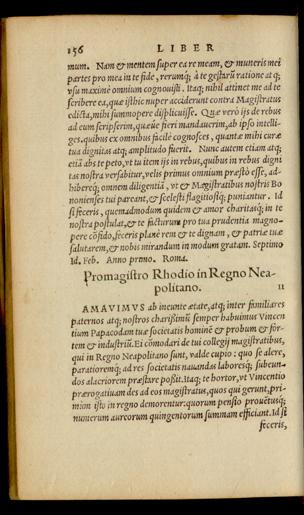 156 LIBER
mum. Nam & mentem super ea re meam, & muneris mei
partes pro mea in te fide, rerumq́; à te gestarū ratione atq;
vsu maximè omnium cognouisti. Itaq; nihil attinet me ad te
scribere ea, quæ isthic nuper acciderunt contra Magistratus
edicta, mihi summopere displicuisse. Quæ verò ijs de rebus
ad eum scripserim, quæue fieri mandauerim, ab ipso intelli-
ges. quibus ex omnibus facilè cognosces, quantæ mihi curæ
tua dignitas atq; amplitudo fuerit. Nunc autem etiam atq;
etiā abs te peto, vt tu item ijs in rebus, quibus in rebus digni
tas nostra versabitur, velis primus omnium præstò esse, ad-
hibereq́; omnem diligentiā, vt & Magistratibus nostris Bo
nonienses tui pareant, & scelesti flagitiosiq́; puniantur. Id
si feceris, quemadmodum quidem & amor charitasq́; in te
nostra postulat, & te facturum pro tua prudentia magno-
pere cōfido, feceris planè rem & te dignam, & patriæ tuæ
salutarem, & nobis mirandum in modum gratam. Septimo
Id. Feb. Anno primo. Roma.
Promagistro Rhodio in Regno Nea-
politano. 11
AMAVIMVS ab ineunte ætate, atq; inter familiares
paternos atq; nostros charißimū semper habuimus Vincen
tium Papacodam tuæ societatis hominē & probum & for-
tem & industriū. Ei cōmodari de tui collegij magistratibus,
qui in Regno Neapolitano sunt, valde cupio: quo se alere,
paratioremq́; ad res societatis nauandas laboresq́; subeun-
dos alacriorem præstare poßit. Itaq; te hortor, vt Vincentio
prærogatiuam des ad eos magistratus, quos qui gerunt, pri-
mùm isto in regno demorentur: quorum pensio prouētusq́;
numerum aureorum quingentorum summam efficiant. Id si
feceris,